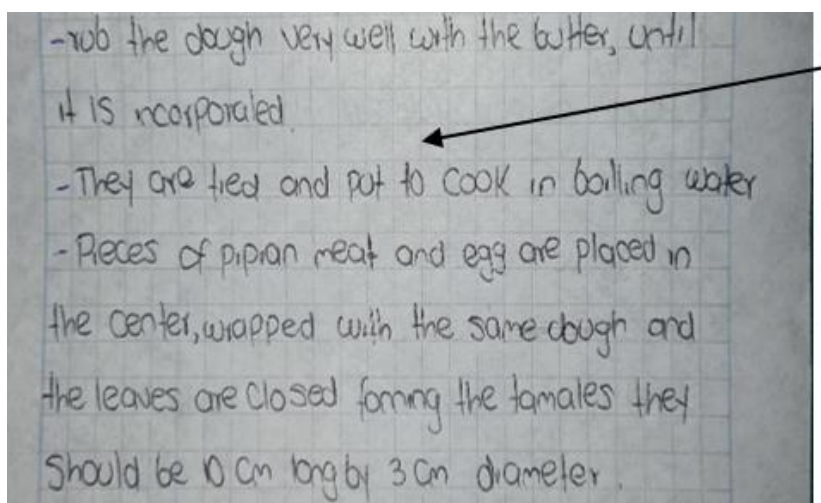 -rub the dough very well with the butter, until
it is ncorporaled.
-They are tied and put to cook in boiling water
-Pieces of pipian meat and egg are placed in
the center, wrapped with the same dough and
the leaves are closed foming the tamales they
should be 10 cm long by 3 cm diameter.